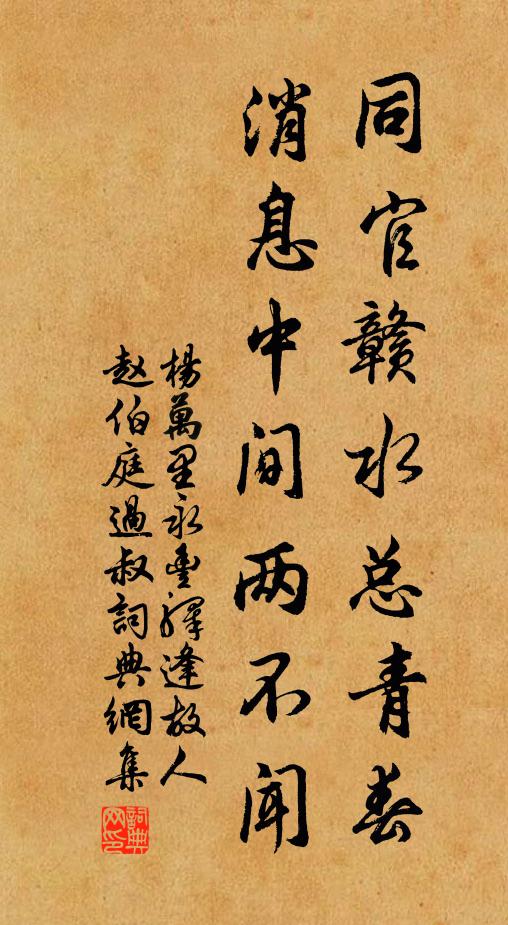 同官赣水总青春
消息中间两不闻
楊萬里永豐驛逢故人
赵伯庭過叔詞典網集
詞典网印